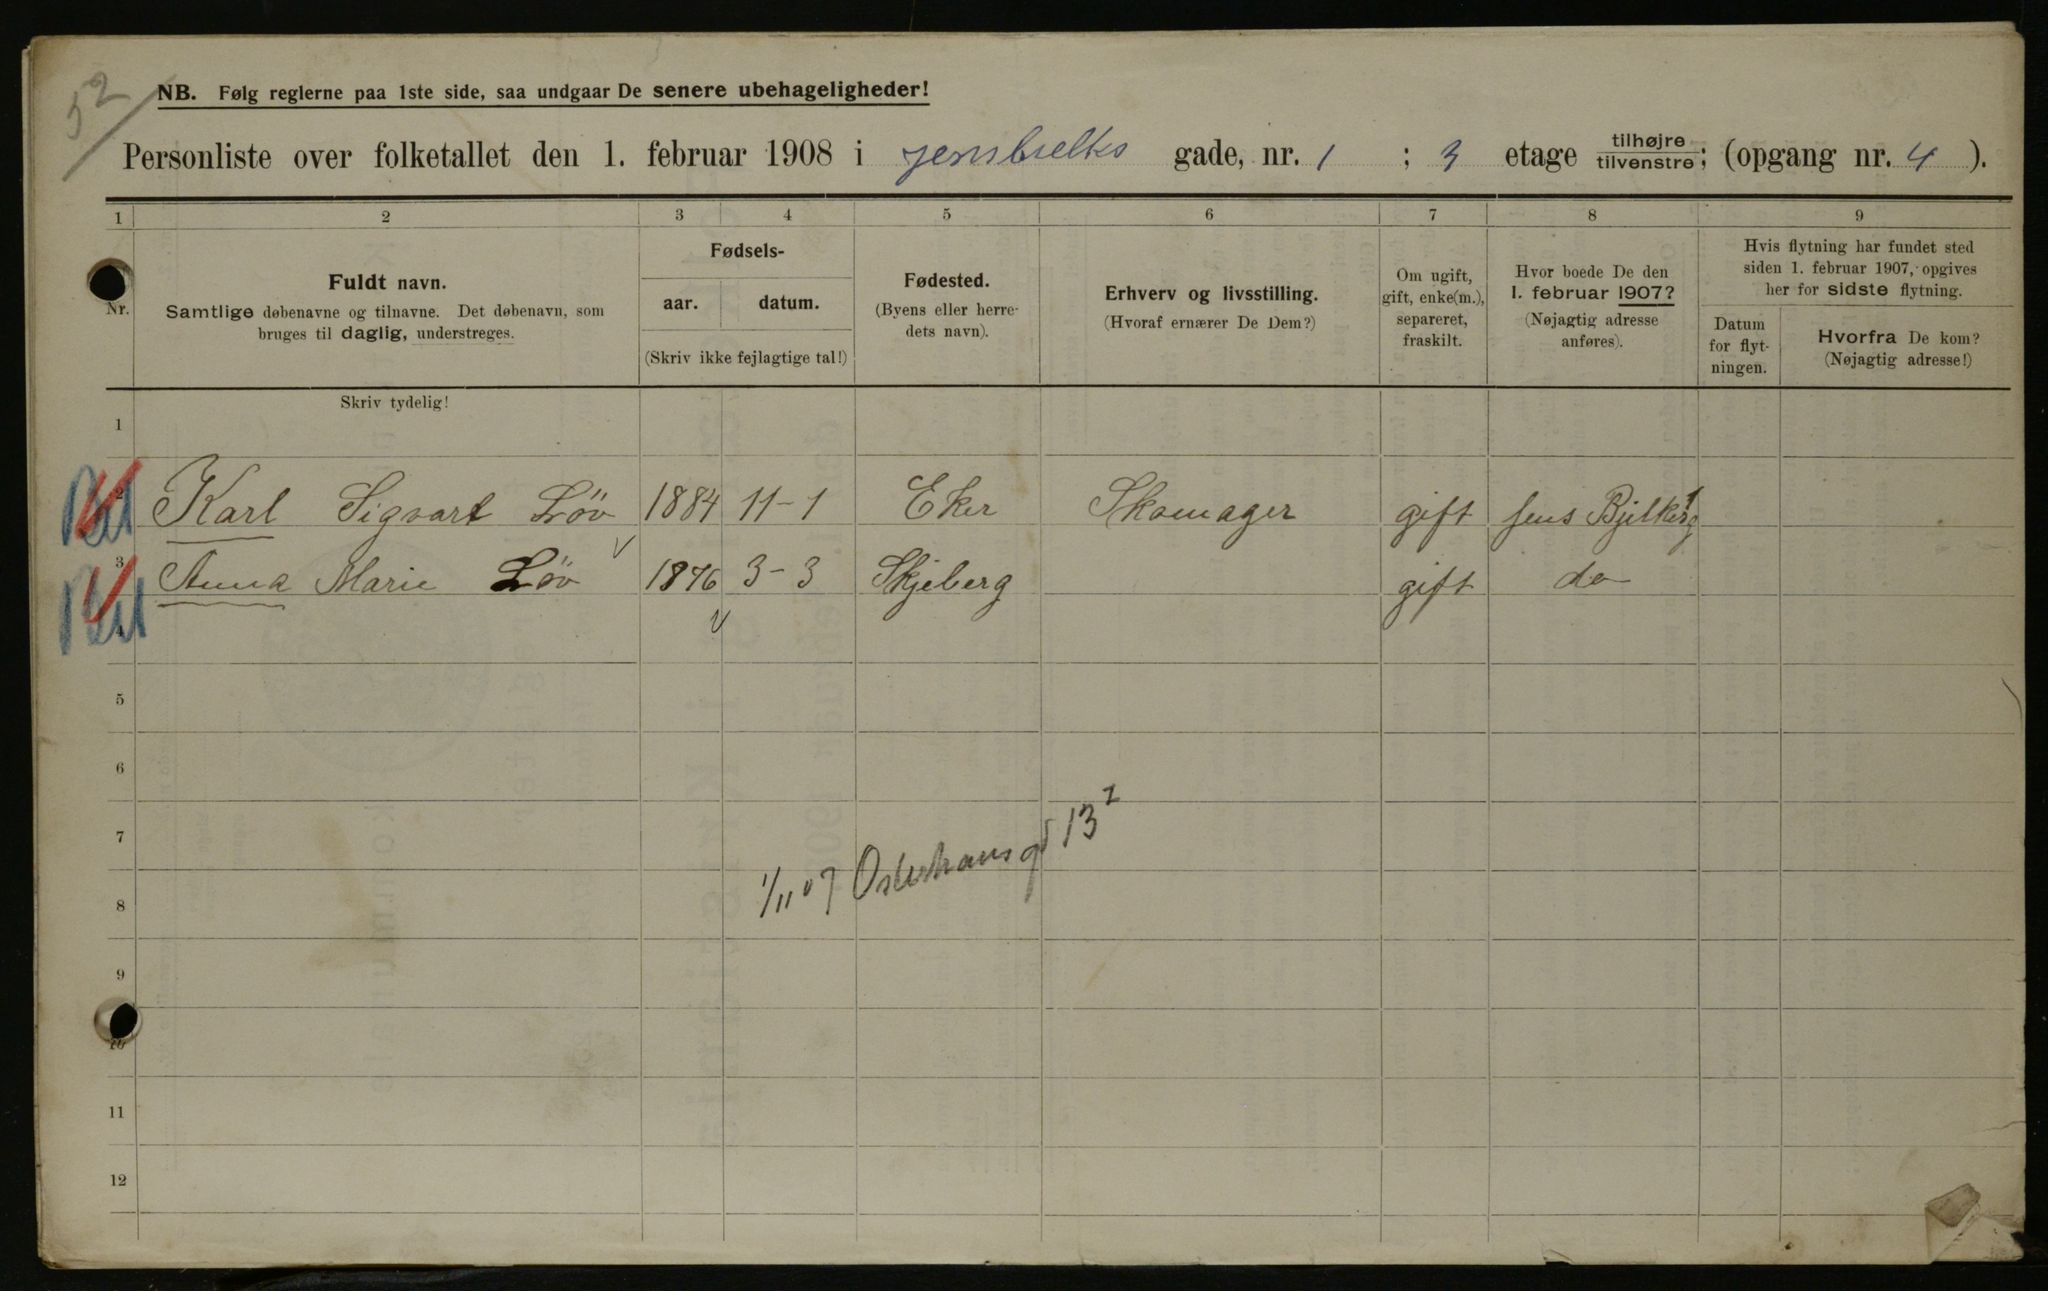 52
NB. Følg reglerne paa 1ste side, saa undgaar De senere ubehageligheder!
Personliste over folketallet den 1. februar 1908 i Jensbielks gade, nr. 1 ; 3 etage tilhøjre tilvenstre; (opgang nr. 4 ).
1 2 3 4 5 6 7 8 9
Nr.
Fuldt navn.
Samtlige døbenavne og tilnavne. Det døbenavn, som
bruges til daglig, understreges.
Fødsels-
aar. datum.
(Skriv ikke fejlagtige tal!)
Fødested.
(Byens eller herre-
dets navn).
Erhverv og livsstilling.
(Hvoraf ernærer De Dem?)
Om ugift,
gift, enke(m.),
separeret,
fraskilt.
Hvor boede De den
1. februar 1907?
(Nøjagtig adresse
anføres).
Hvis flytning har fundet sted
siden 1. februar 1907, opgives
her for sidste flytning.
Datum
for flyt-
ningen.
Hvorfra De kom?
(Nøjagtig adresse!)
Skriv tydelig!
1
2 Karl Sigvart Löv 1884 11-1 Eker Skomager gift Jens Bjelkesg 1
3 Anna Marie Löv 1876 3-3 Skjeberg gift do
4
5
6
7
1/11 07 Osterhausgd 13 2
8
9
10
11
12